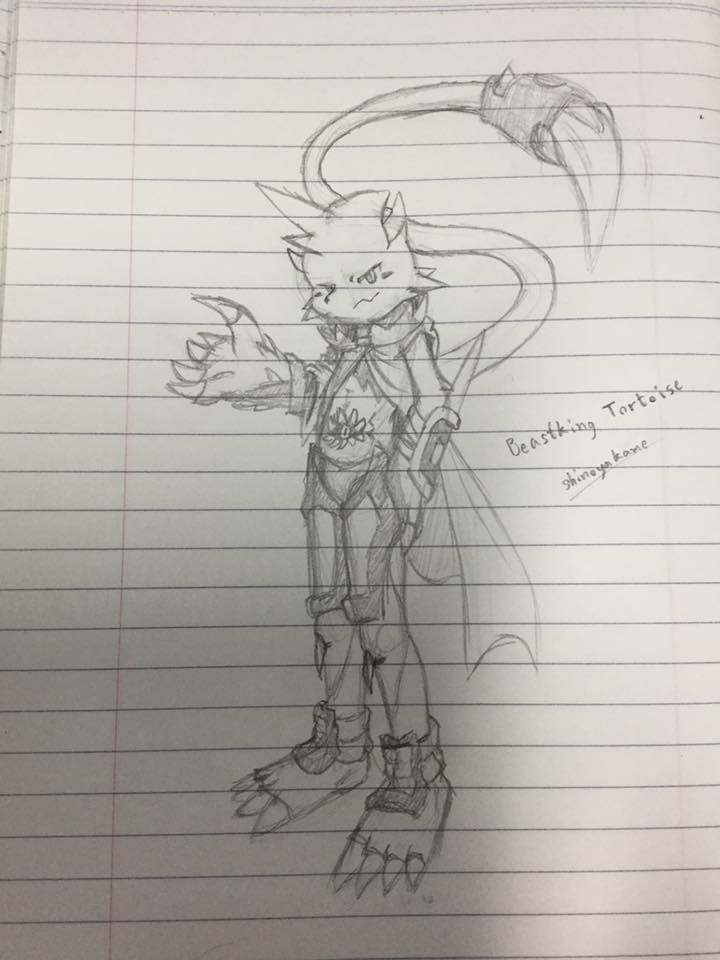 Beastking Tortoise
shinoyakame